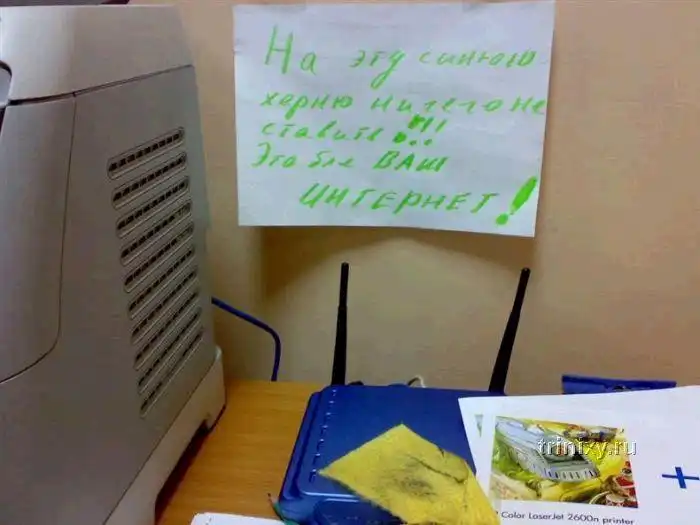 На эту синюю
херню ничего не
ставить!!!
Это бля ВАШ
ИНТЕРНЕТ!
trinixy.ru
+
P Color LaserJet 2600n printer